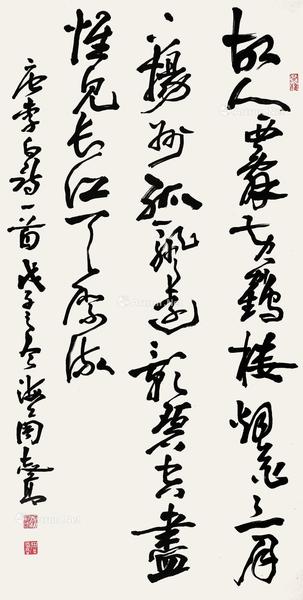 故人西辭黄鶴樓烟花三月
下揚州孤帆遠影碧空盡
惟見長江天際流
唐李白詩一首戊子之